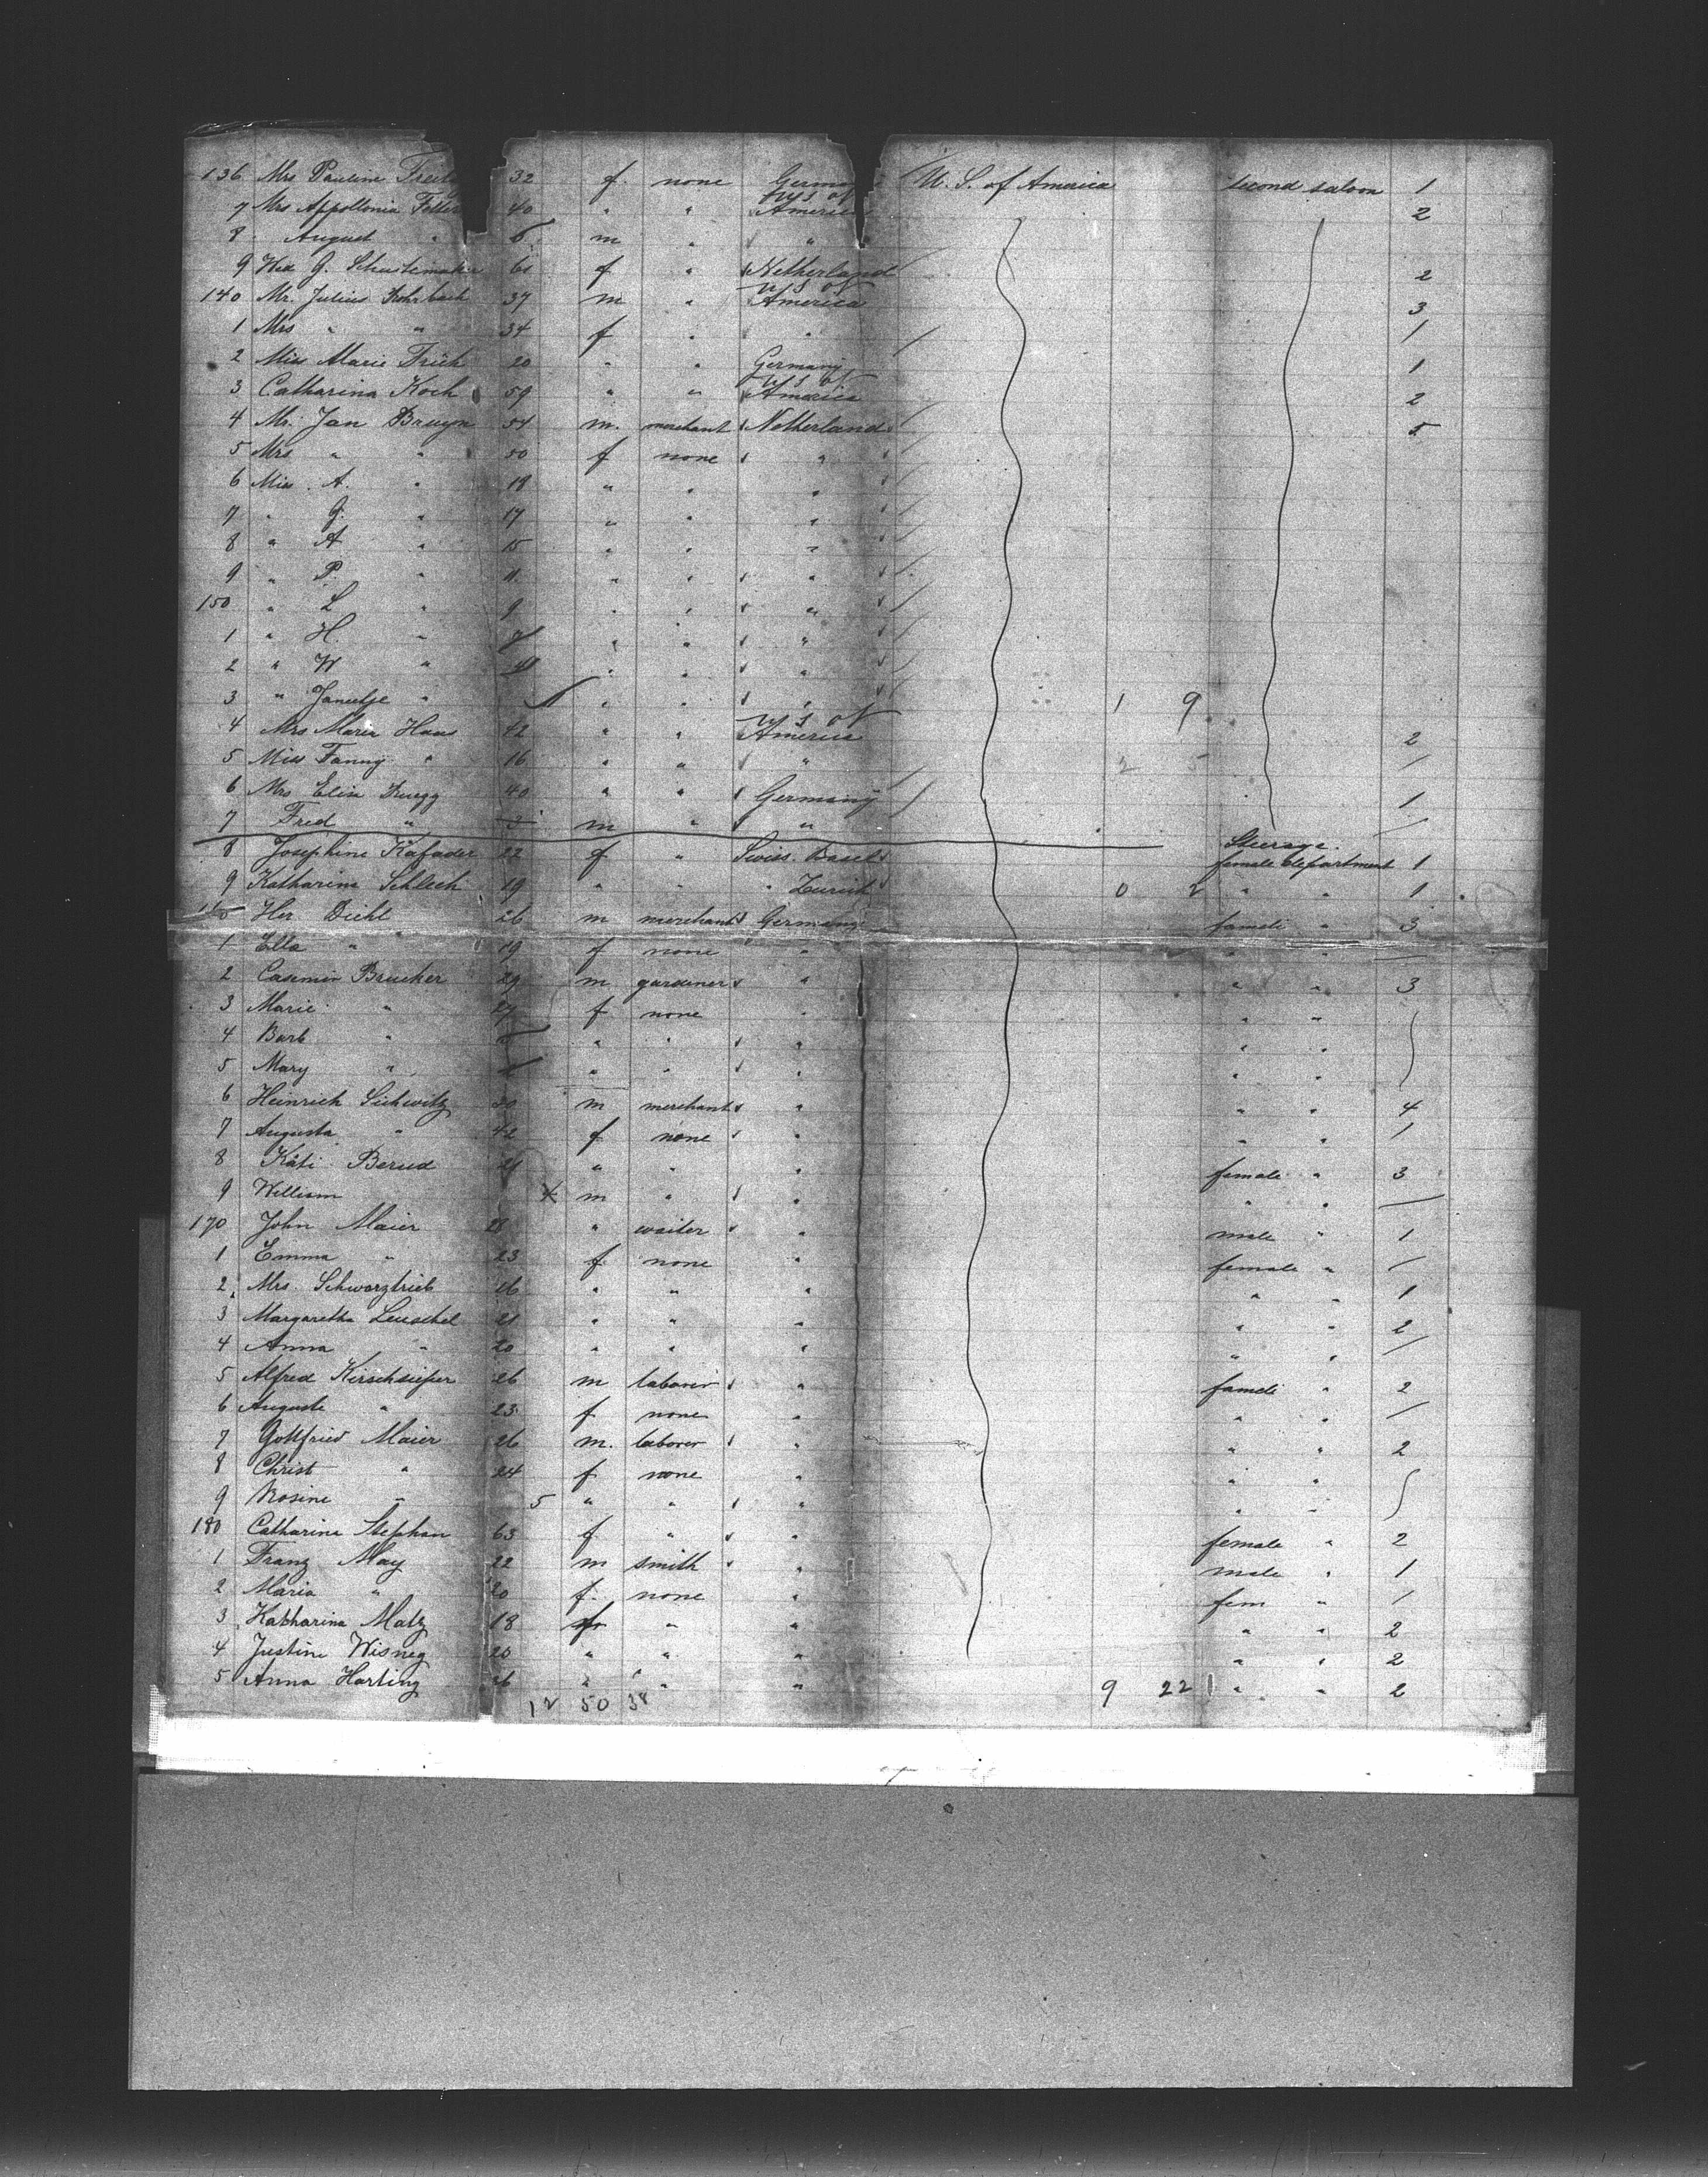 136 Mrs Pauline 32 f. none U. S. of America second saloon 1
7 Mrs Appollonia 40 " " U S of America 2
8 August " m " "
9 G. 61 f " Netherland 2
140 Mr. Julius Rohrbach 37 m " U S of America 3
1 Mrs " " 34 f " " /
2 Miss Marie Früh 20 " " Germany 1
3 Catharina Koch 59 " " U S of America 2
4 Mr. Jan Bruyn 54 m. merchant Netherland 5
5 Mrs " " 50 f none "
6 Miss A. " 18 " " "
7 " G. " 17 " " "
8 " A " 15 " " "
9 " P. " 11 " " "
150 " L " 9 " " "
1 " H. " " " "
2 " W " " " "
3 " Janetje " " " " 1 9
4 Mrs Maria Haas 42 " " U S of America 2
5 Miss Fanny " 16 " " " /
6 Mrs Elin 40 " " Germany 1
7 Fred " 3 m " " /
Steerage.
8 Josephine Kafader 22 f " Swiss. Basel female department 1
9 Katharina Schlech 19 " " " Zurich 0 2 " " 1
160 Her Diehl 26 m merchant Germany famili " 3
1 Ella " 19 f none " " " /
2 Casimir Brucker 29 m gardener " " " 3
3 Marie " 27 f none " " "
4 Barb " " " " " "
5 Mary " " " " " "
6 Heinrich m merchant " " " 4
7 Augusta " 42 f none " " " /
8 Käti 21 " " " female " 3
9 William m " " " " /
170 John Maier 28 " waiter " male " 1
1 Emma " 23 f none " female " /
2 Mrs. Schwarztrieb 26 " " " " " 1
3 Margaretha Leuschel 21 " " " " " 2
4 Anna " 20 " " " " " /
5 Alfred Kirschsieper 26 m laborer " famili " 2
6 Auguste " 23 f none " " " /
7 Gottfried Maier 26 m. laborer " " " 2
8 Christ " 24 f none " " "
9 Rosine " 5 " " " " "
180 Catharina Stephan 63 f " " female " 2
1 Franz May 22 m smith " male " 1
2 Maria " 20 f. none " fem " /
3 Katharina Matz 18 f " " " " 2
4 Justine Wisneg 20 " " " " " 2
5 Anna Harting 26 " " " 9 22 " " 2
12 50 38